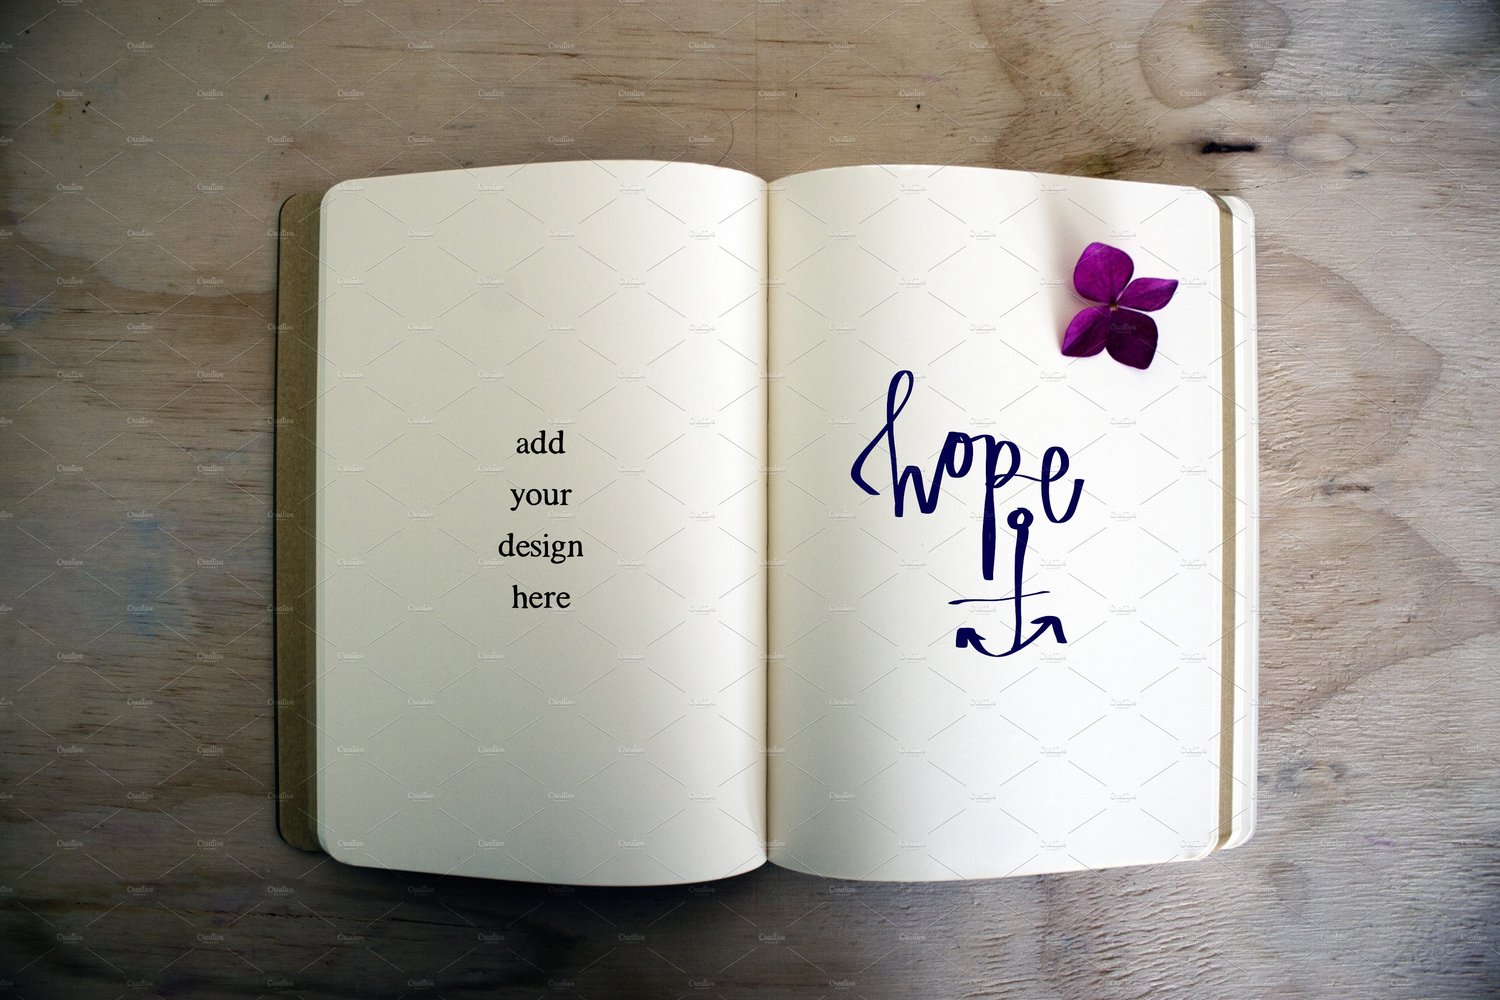 add
your
design
here
hope
Creative